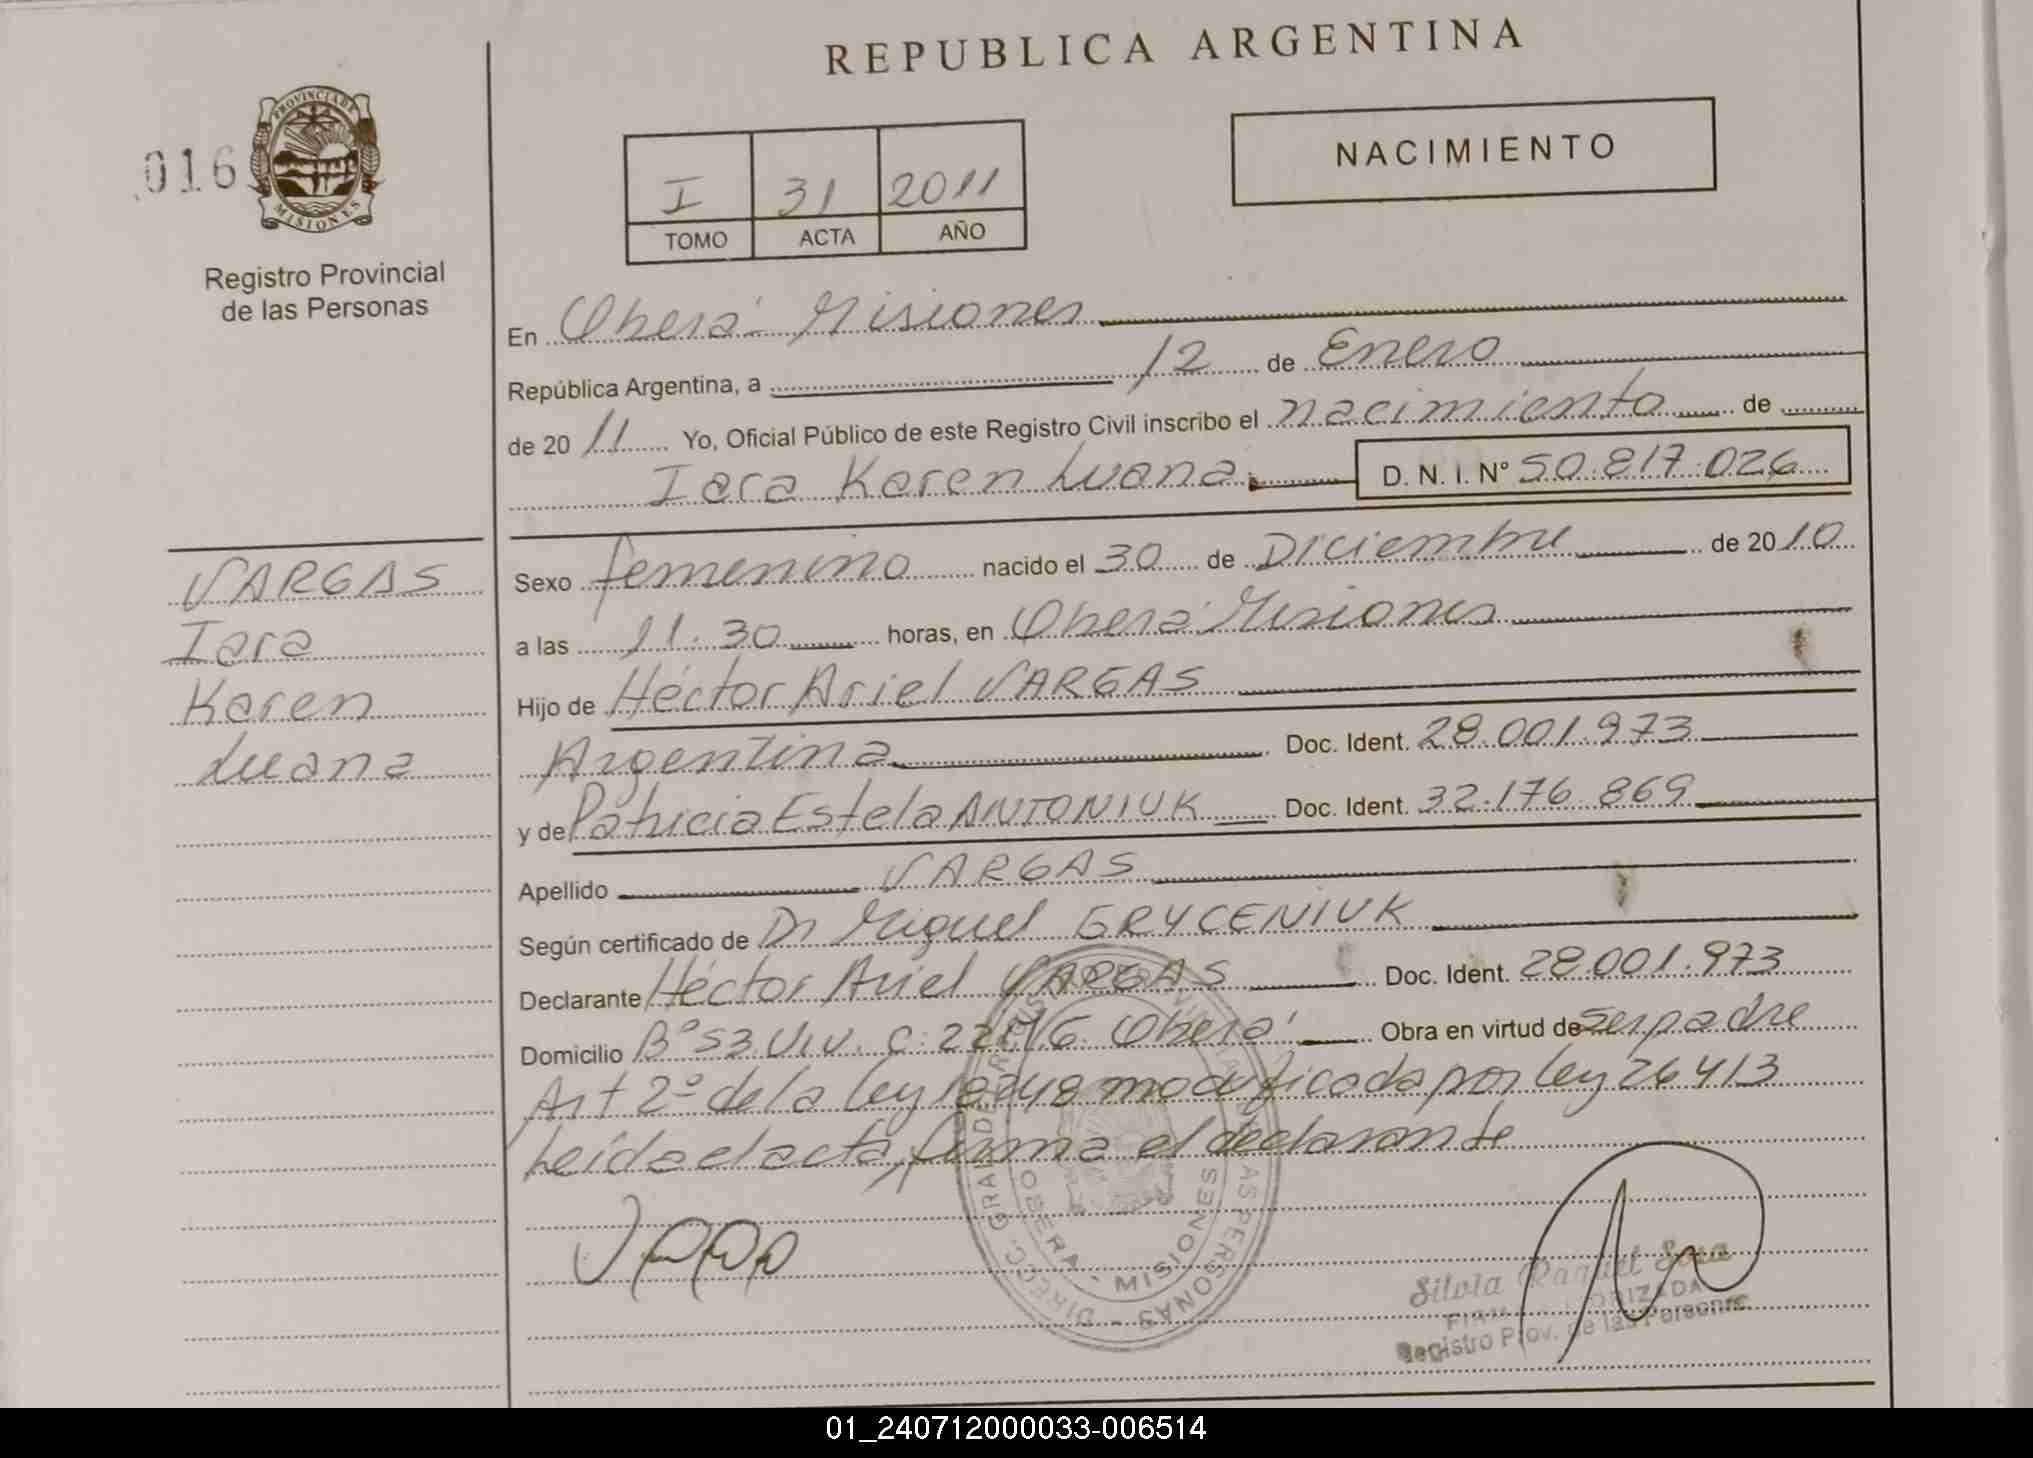 REPUBLICA ARGENTINA
016
PROVINCIA DE
MISIONES
Registro Provincial
de las Personas
I 31 2011
TOMO ACTA AÑO
NACIMIENTO
En Oberá Misiones
República Argentina, a 12 de Enero
de 2011 Yo, Oficial Público de este Registro Civil inscribo el nacimiento de
Iara Karen Luana. D. N. I. Nº 50.817.026
VARGAS
Iara
Karen
Luana
Sexo femenino nacido el 30 de Diciembre de 2010
a las 11.30 horas, en Oberá Misiones
Hijo de Héctor Ariel VARGAS
Argentina Doc. Ident. 28.001.973
y de Patricia Estela ANTONIUK Doc. Ident. 32.176.869
Apellido VARGAS
Según certificado de Dr Miguel GRYCENIUK
Declarante Héctor Ariel VARGAS Doc. Ident. 28.001.973
Domicilio Bº 53 Viv. C: Oberá Obra en virtud de ser padre
Art 2º de la Ley 18248 modificada por Ley 26413
Leída el acta, firma el declarante
OBERA - MISIONES
PERSONAS - DIRECC. GRAL. DE
Silvia Raquel Sosa
FIRMA AUTORIZADA
Registro Prov. de las Personas
01_240712000033-006514